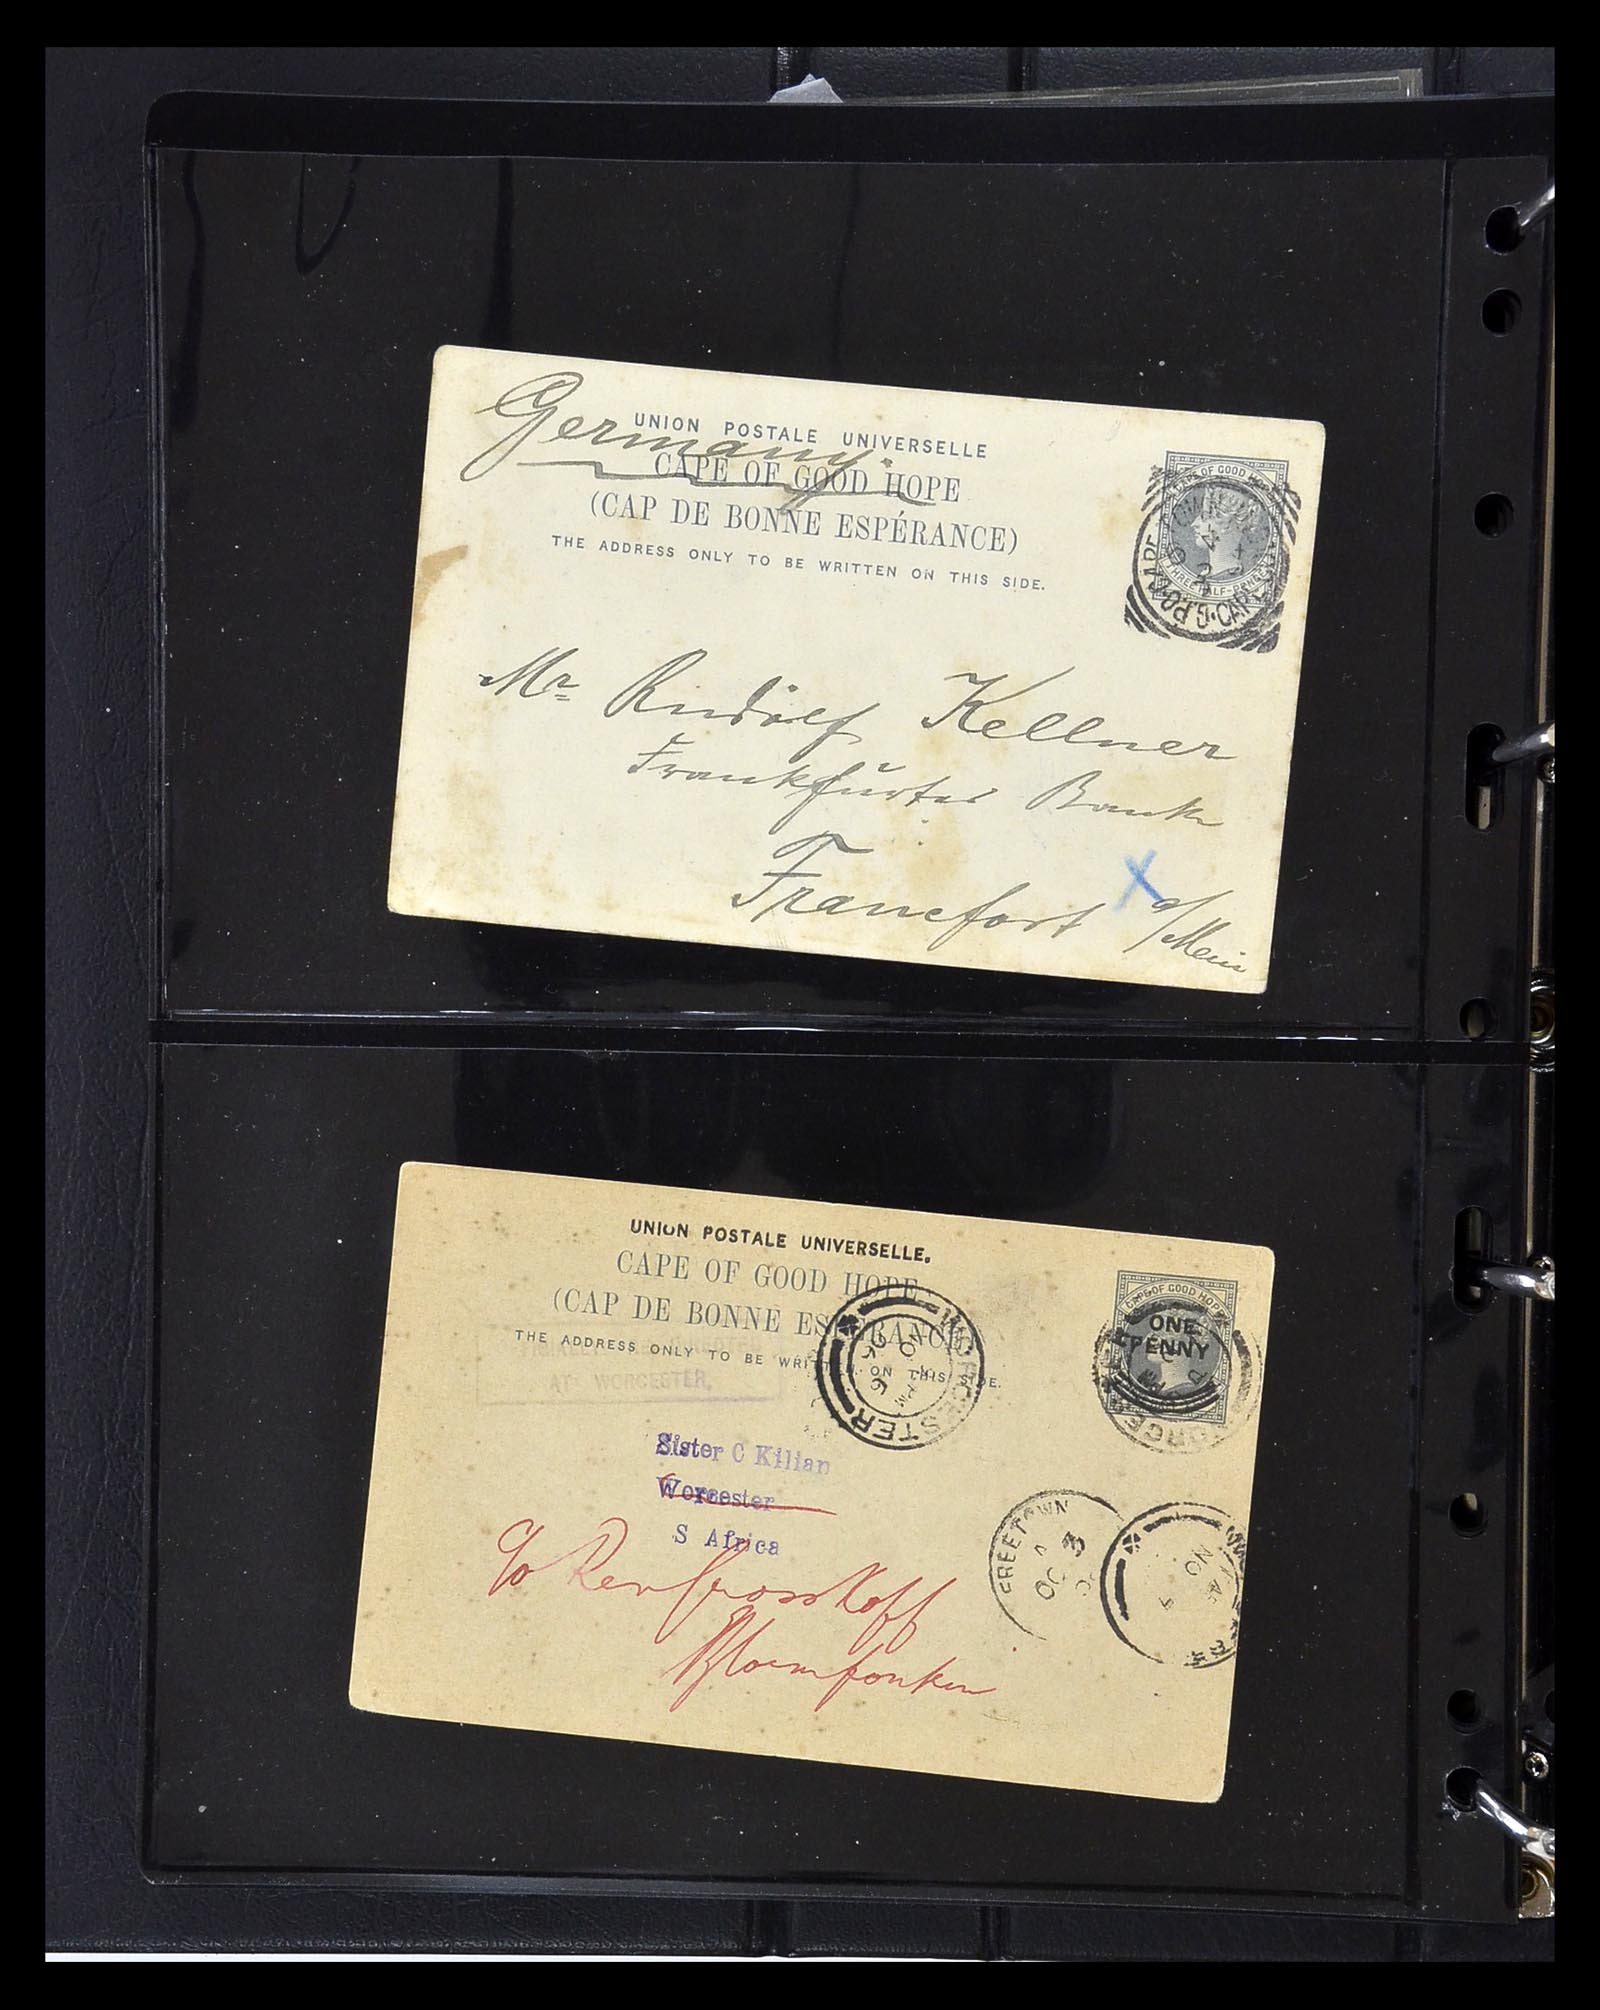 Germany.
UNION POSTALE UNIVERSELLE
CAPE OF GOOD HOPE
(CAP DE BONNE ESPÉRANCE)
THE ADDRESS ONLY TO BE WRITTEN ON THIS SIDE.
CAPE OF GOOD HOPE
THREE HALF-PENCE
G.P.O.
Mr Rudolf Kellner
Frankfurter Bank
Francfort a/Mein
X
UNION POSTALE UNIVERSELLE.
CAPE OF GOOD HOPE
(CAP DE BONNE ESPÉRANCE)
THE ADDRESS ONLY TO BE WRITTEN ON THIS SIDE.
CAPE OF GOOD HOPE
ONE
PENNY
AT WORCESTER.
WORCESTER
NO
PM
Sister C Kilian
Worcester
S Africa
FREETOWN
NO
c/o Rev Grosskopf
Bloemfontein